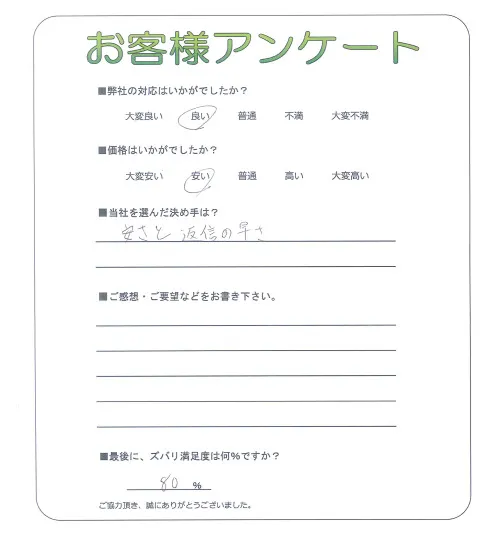 お客様アンケート
■弊社の対応はいかがでしたか？
大変良い 良い 普通 不満 大変不満
■価格はいかがでしたか？
大変安い 安い 普通 高い 大変高い
■当社を選んだ決め手は？
安さと 返信の早さ
■ご感想・ご要望などをお書き下さい。
■最後に、ズバリ満足度は何%ですか？
80 %
ご協力頂き、誠にありがとうございました。